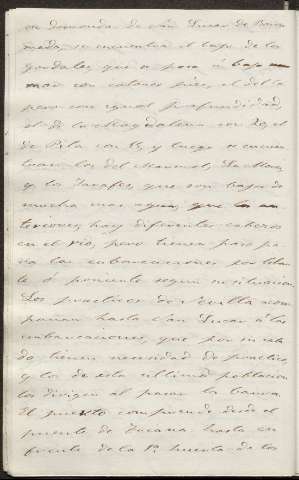 en demanda de San Lucar de Barra
meda, se encuentra el bajo de los
gordales, que a poca ó baja
mar con catorce pies, el del
pero con igual profundidad,
el de la Magdalena con 20, el
de Pila con 15, y luego se encuen
tran los del Mármol,
y los Jarafes, que son bajos de
mucha mas agua, que los an
teriores; hay diferentes cabezos
en el río, pero tienen paso pa
ra las embarcaciones por Levan
te ó poniente segun su situacion.
Los practicos de Sevilla acom
pañan hasta San Lucar á las
embarcaciones, que por su cala
do, tienen necesidad de practico,
y los de esta ultima poblacion
los dirigen al pasar la barra.
El puerto comprende desde el
puente de Triana hasta en
frente de la Pta. huerta de los